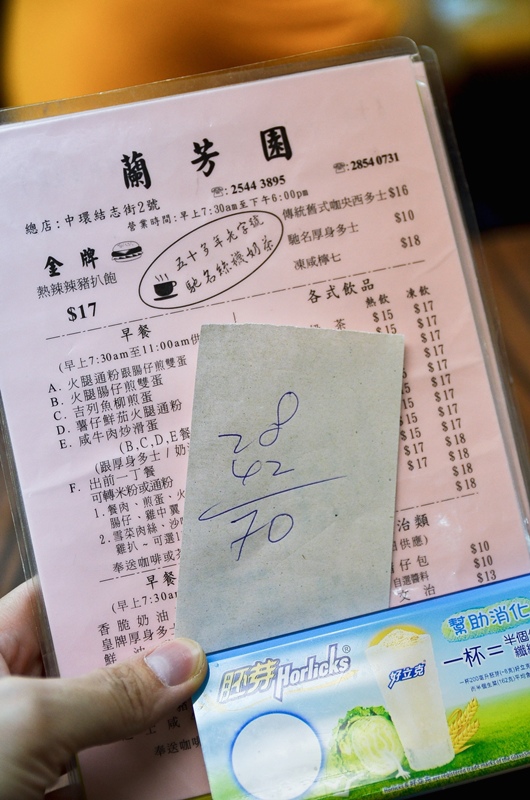 蘭芳園
☎: 2544 3895
☎: 2854 0731
總店:中環結志街2號
營業時間:早上7:30am至下午6:00pm
金牌
熱辣辣豬扒飽
$17
五十多年老字號
馳名絲襪奶茶
傳統舊式咖央西多士 $16
馳名厚身多士 $10
凍咸檸七 $18
早餐
(早上7:30am至11:00am供
A. 火腿通粉跟腸仔煎雙蛋
B. 火腿腸仔煎雙蛋
C. 吉列魚柳煎蛋
D. 薯仔鮮茄火腿通粉
E. 咸牛肉炒滑蛋
(B,C,D,E餐
(跟厚身多士/奶
F. 出前一丁餐
可轉米粉或通粉
1. 餐肉、煎蛋、火
腸仔、雞中翼
2. 雪菜肉絲、沙
雞扒、可選
奉送咖啡或
各式飲品
熱飲 凍飲
茶 $15 $17
$15 $17
$15 $17
$15 $17
$17
$17
$17 $18
$18
$18
$18
28
42
70
早餐
(早上7:30am
香脆奶油
皇牌厚身多
鮮油
奉送咖
治類
供應)
仔包 $10
自選醬料 $10
文治 $13
胚芽Horlicks®
好立克
幫助消化
一杯=半個
纖